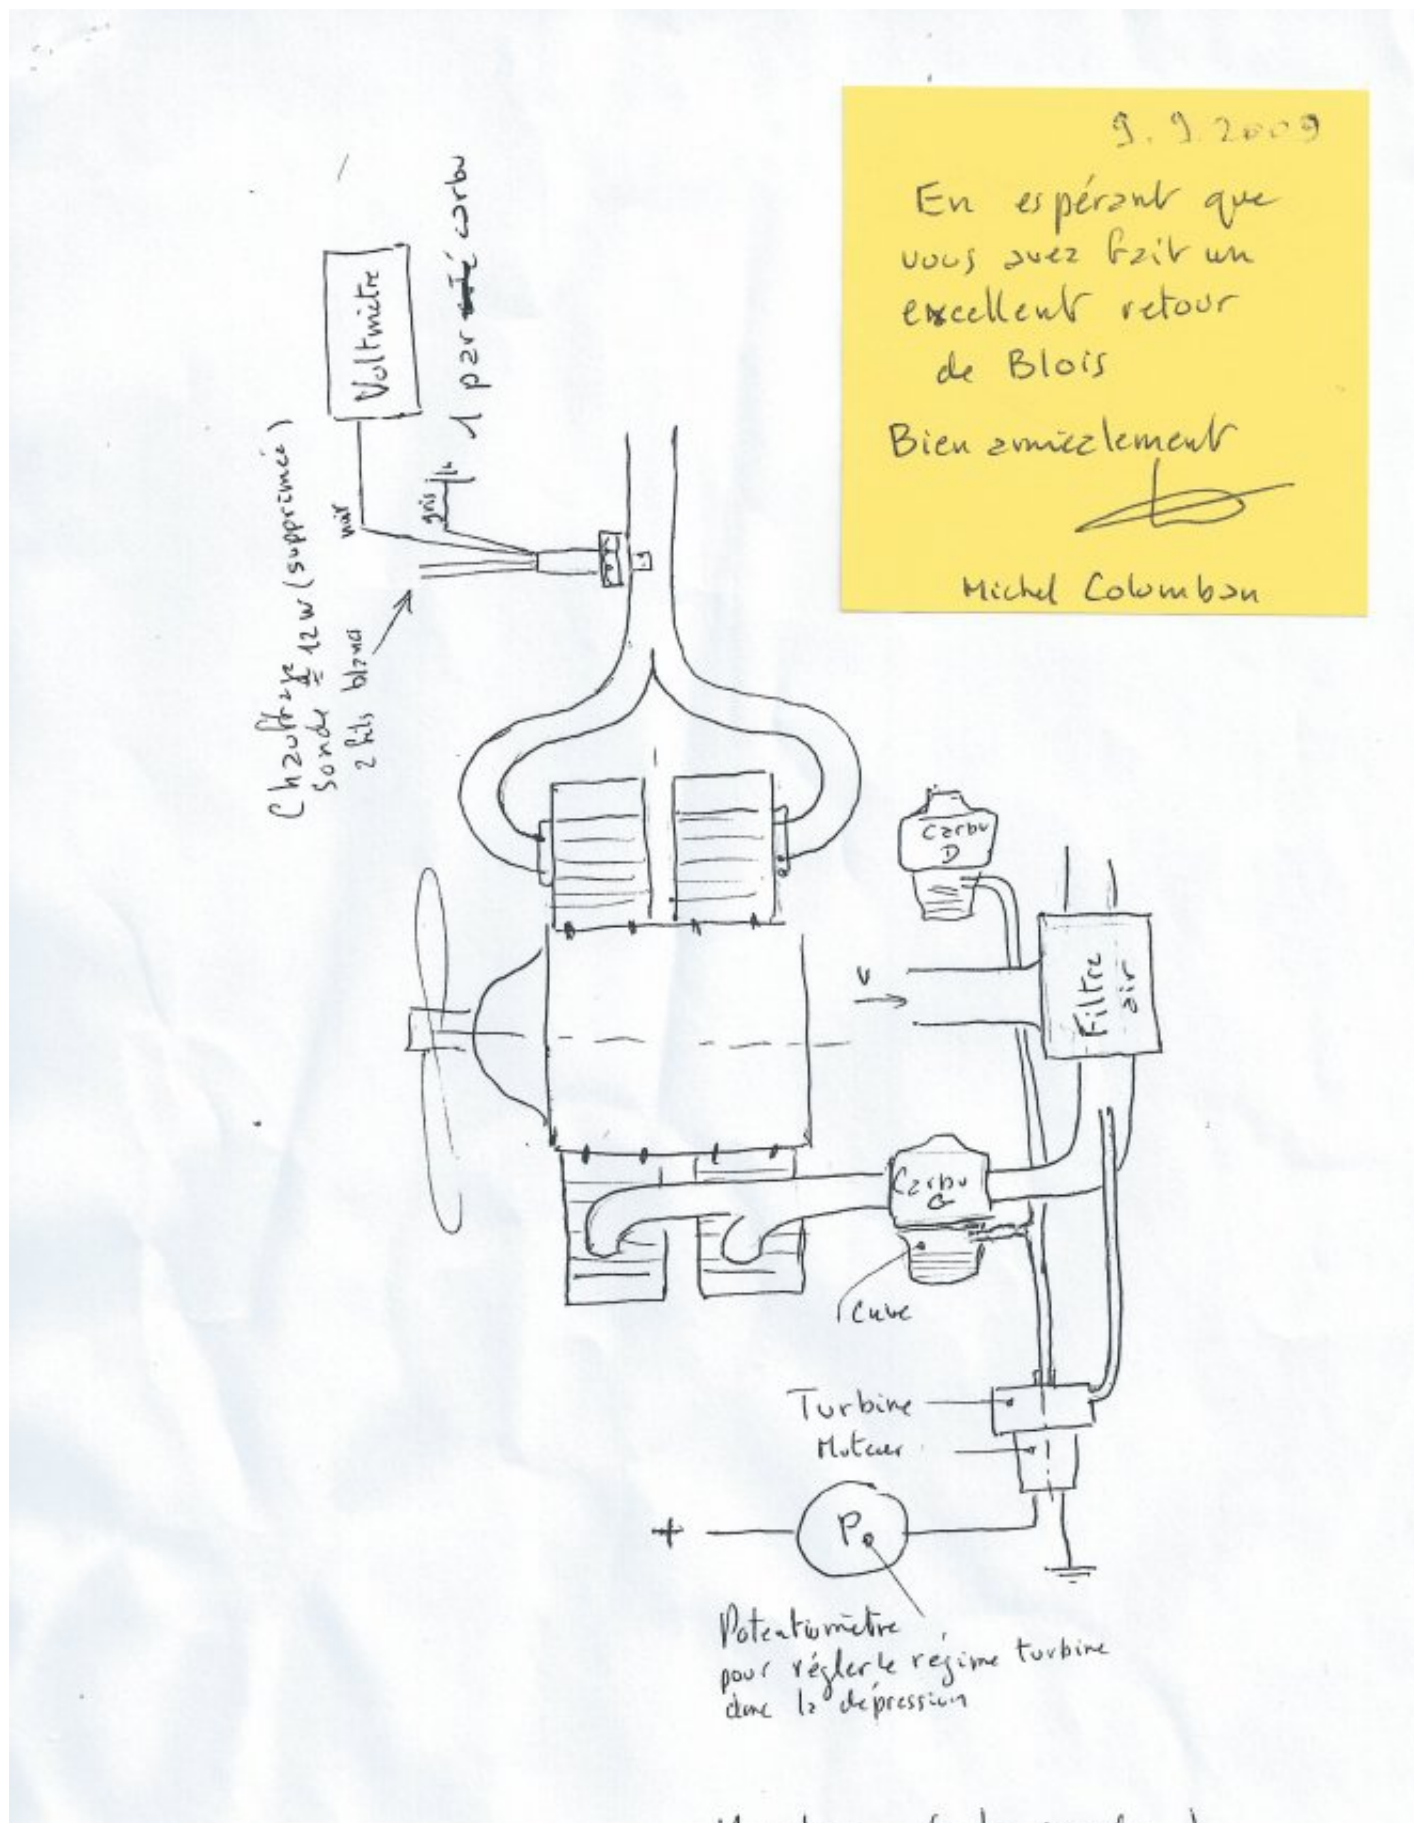 9.9.2009
En espérant que
vous avez fait un
excellent retour
de Blois
Bien amicalement
Michel Colomban
Voltmètre
1 par carbu
noir
gris
Chauffage
sonde = 12W (supprimée)
2 fils blancs
Carbu
D
V
Filtre
air
Carbu
G
Cuve
Turbine
Moteur
+
P
Potentiomètre
pour régler le régime turbine
donc la dépression